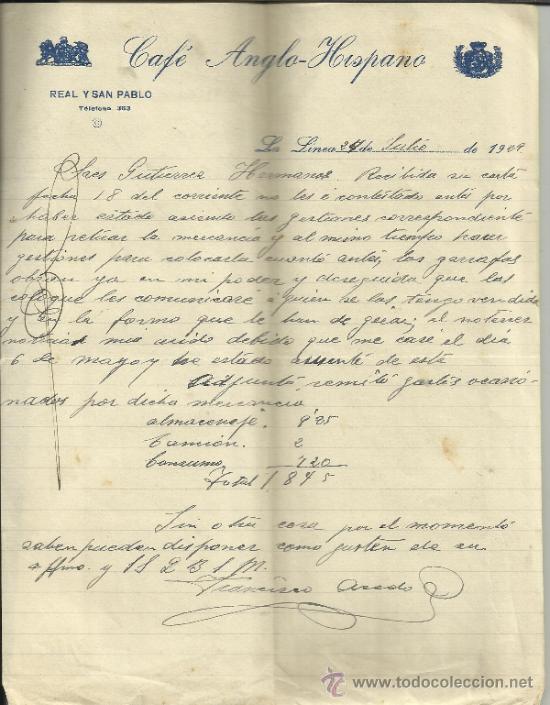 Café Anglo-Hispano
REAL Y SAN PABLO
Teléfono 363
La Línea 24 de Julio de 1909
Sres Gutierrez Hermanos. Recibida su carta
fecha 18 del corriente no les é contestado antes por
haber estado asiendo las gestiones correspondiente
para retirar la mercancia y al mimo tiempo hacer
gestiones para colocarla cuanto antes, las garrafas
obran ya en mi poder y deseguida que las
coloque les comunicaré á quien se las tengo vendida
y en la forma que le han de girar; el no tener
noticias mia asido debido que me case el dia
6 de mayo y he estado ausente de esta
Adjunto remito gastos ocasio
nados por dicha mercancia
almacenage. 
Camión. 2
Consumo, 
Total 
Sin otra cosa por el momento
saben pueden disponer como gusten de su
affmo. y
Francisco
www.todocoleccion.net